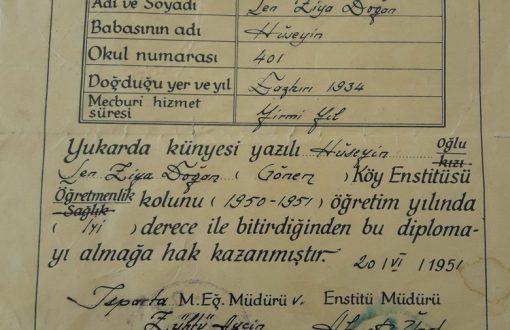 Adı ve Soyadı Şen Ziya Doğan
Babasının adı Hüseyin
Okul numarası 401
Doğduğu yer ve yıl 1934
Mecburi hizmet
süresi Yirmi Yıl
Yukarda künyesi yazılı Hüseyin Oğlu kızı
Şen Ziya Doğan ( Gönen ) Köy Enstitüsü
Öğretmenlik Sağlık kolunu ( 1950-1951 ) öğretim yılında
( İyi ) derece ile bitirdiğinden bu diploma-
yı almağa hak kazanmıştır. 20 / VI / 1951
Isparta M.Eğ. Müdürü v. Enstitü Müdürü